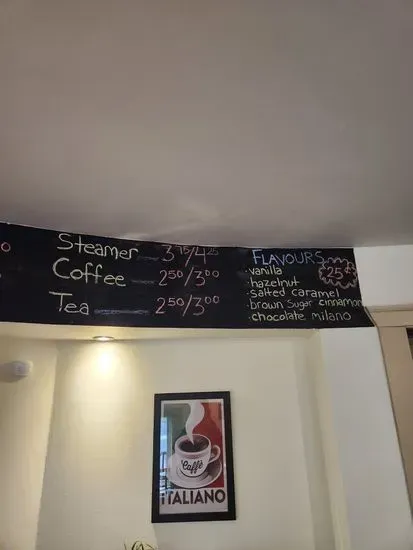 Steamer 3 75/4 25
Coffee 2 50/3 00
Tea 2 50/3 00
FLAVOURS
25¢
vanilla
hazelnut
salted caramel
brown sugar cinnamon
chocolate milano
Caffè
ITALIANO